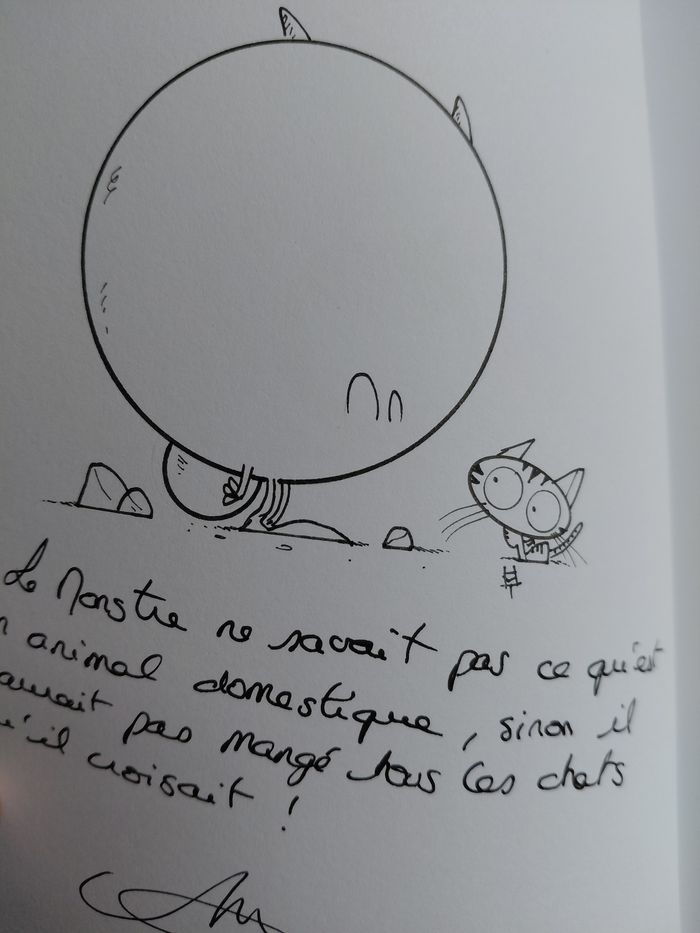 Le Monstre ne savait pas ce qu'est
animal domestique, sinon il
aurait pas mangé tous les chats
qu'il croisait !